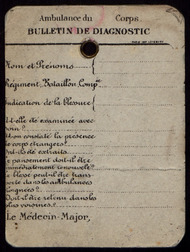 Ambulance du Corps
BULLETIN DE DIAGNOSTIC
Nom et Prénoms
Régiment, Bataillon, Comp.ie
Indication de la Blessure
-t-elle été examinée avec
soin?
-t-on constaté la présence
de corps étrangers?
-ils été extraits
pansement doit-il être
renouvelé?
Le blessé peut-il être trans-
porté dans les ambulances
éloignées?
Doit-il être retenu dans les
plus voisines?
Le Médecin-Major,